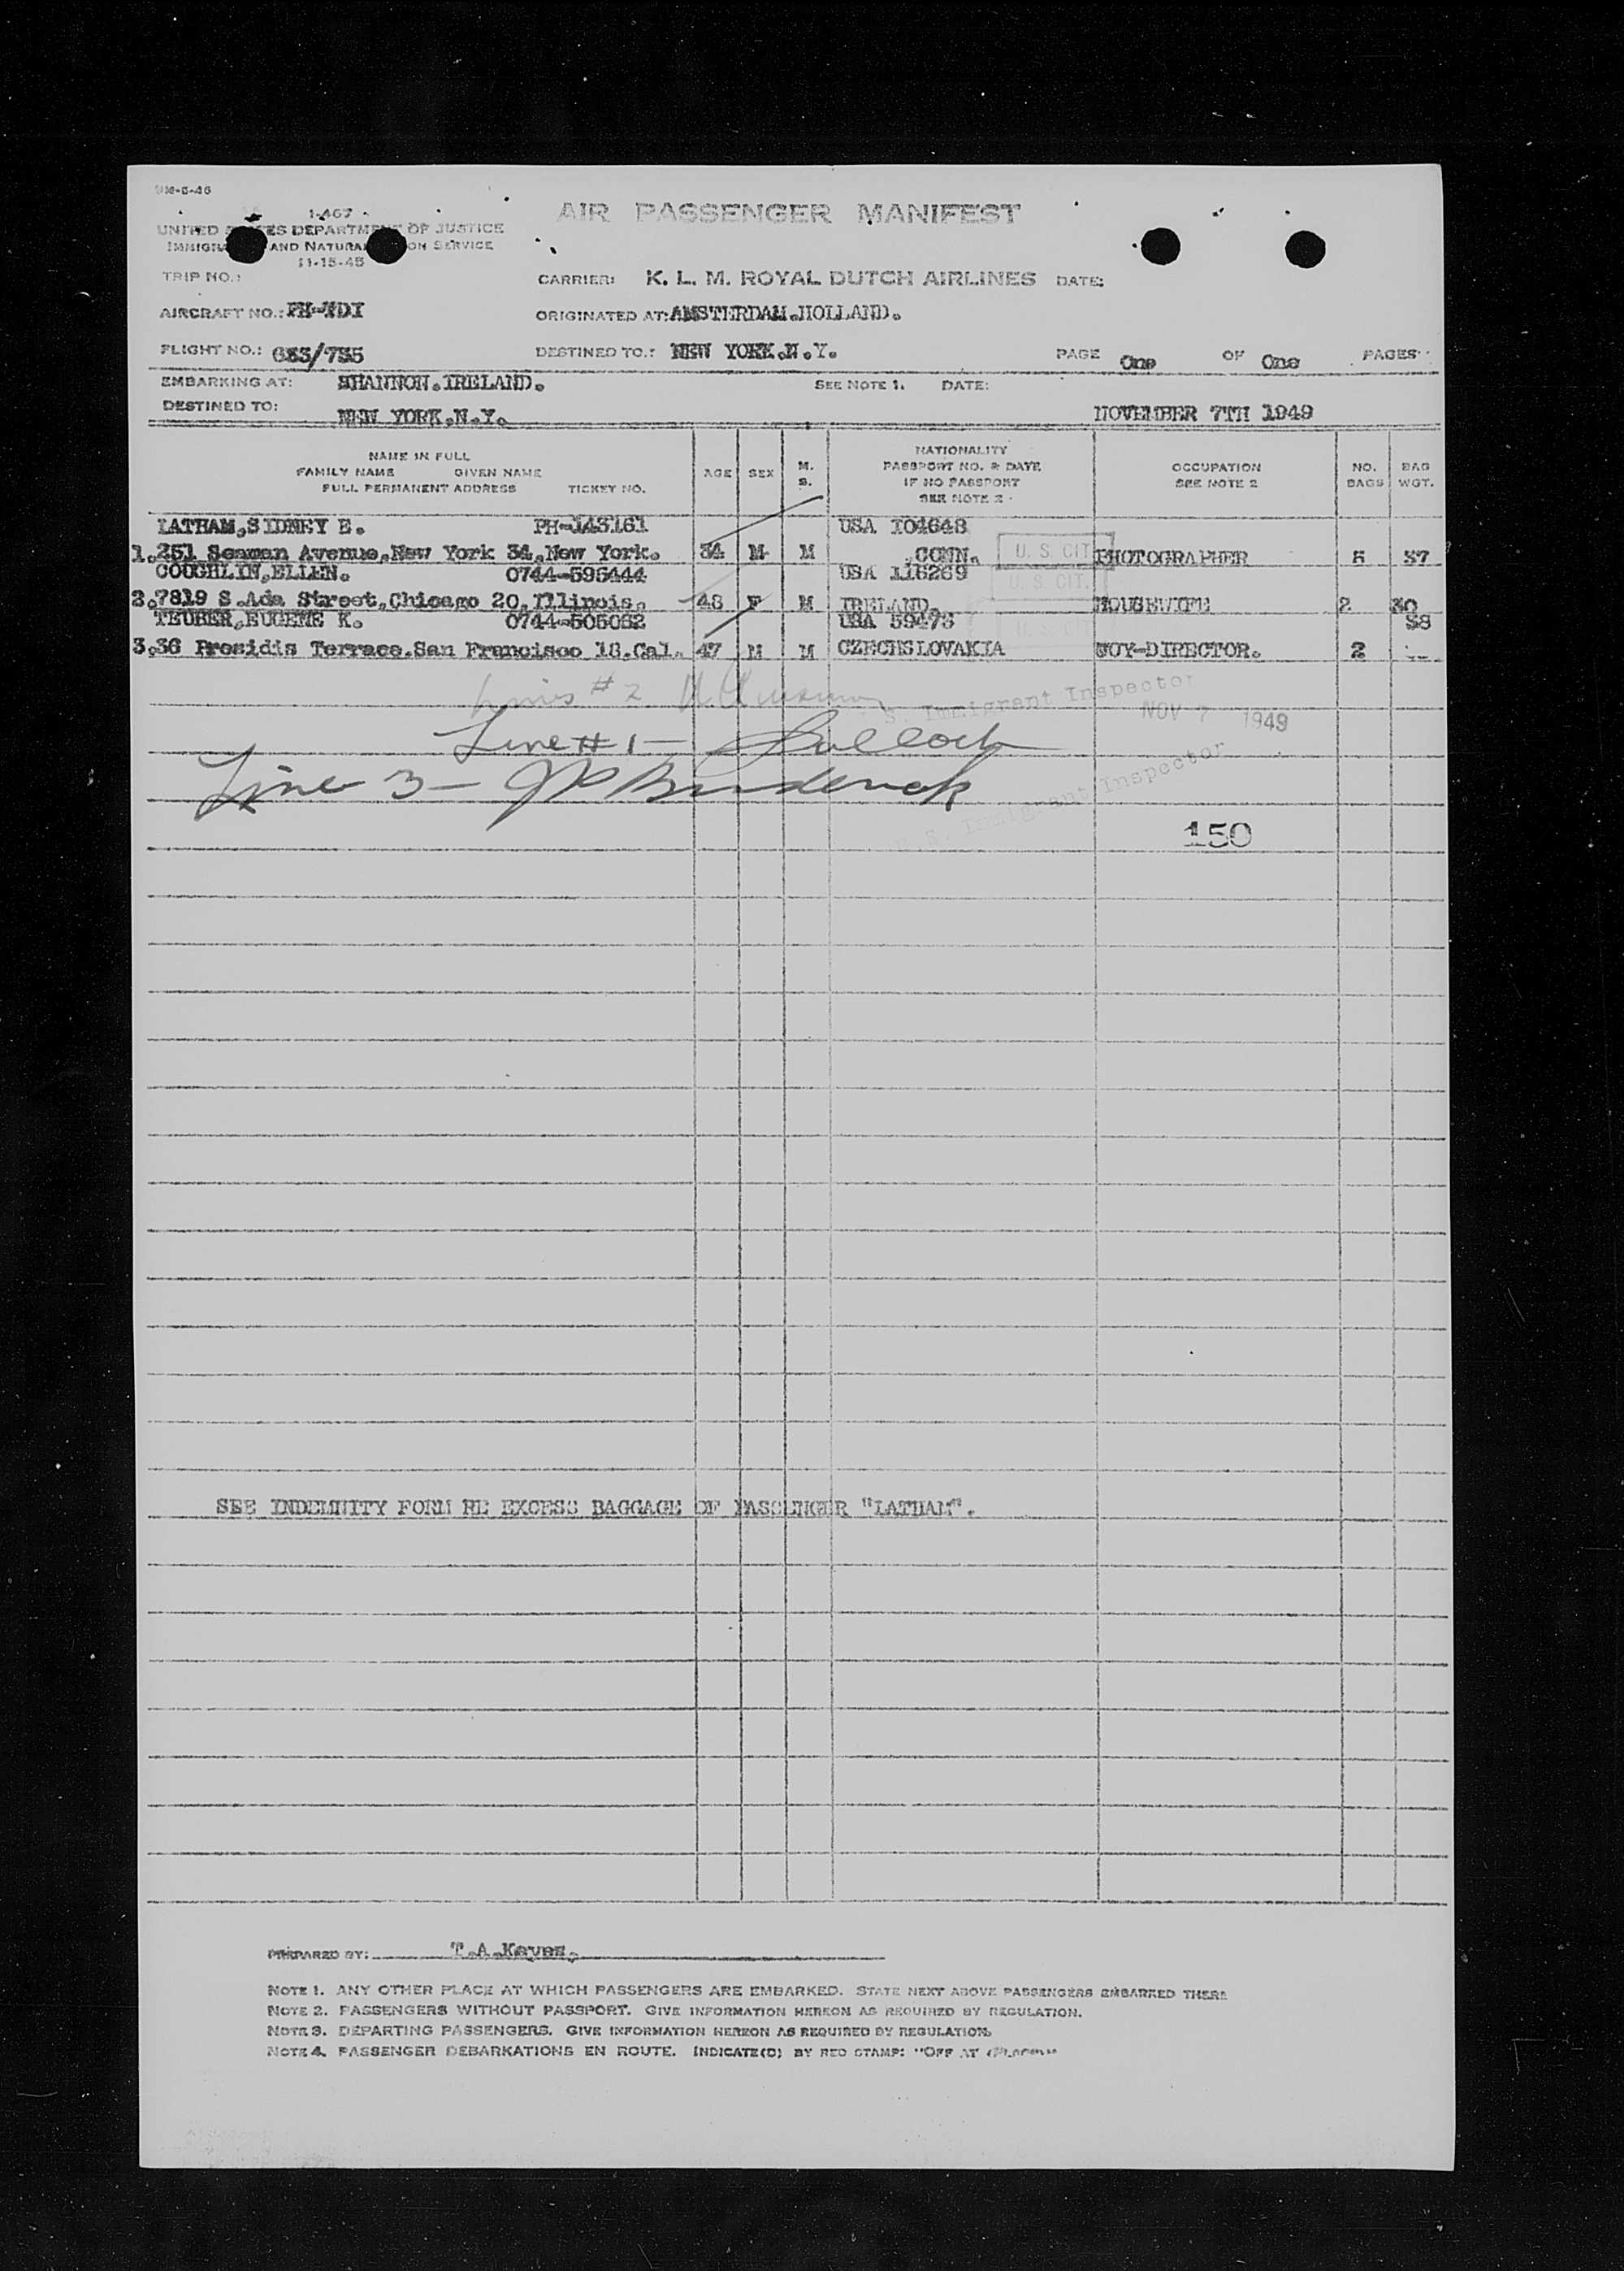 AIR PASSENGER MANIFEST
1-467
UNITED STATES DEPARTMENT OF JUSTICE
IMMIGRATION AND NATURALIZATION SERVICE
11-15-45
TRIP NO.: CARRIER: K. L. M. ROYAL DUTCH AIRLINES DATE:
AIRCRAFT NO.: ORIGINATED AT: AMSTERDAM.HOLLAND.
FLIGHT NO.: DESTINED TO.: NEW YORK.N.Y. PAGE One OF One PAGES
EMBARKING AT: SHANNON.IRELAND. SEE NOTE 1. DATE:
DESTINED TO: NEW YORK.N.Y. NOVEMBER 7TH 1949
NAME IN FULL
FAMILY NAME GIVEN NAME
FULL PERMANENT ADDRESS TICKET NO.
AGE SEX M. S.
NATIONALITY
PASSPORT NO. & DATE
IF NO PASSPORT
SEE NOTE 2
OCCUPATION
SEE NOTE 2
NO. BAGS
BAG WGT.
LATHAM,SIDNEY E. PH-143161 USA 104648
1.251 Seaman Avenue,New York 34,New York. 34 M M CONN. U. S. CIT. PHOTOGRAPHER 5 57
COUGHLIN,ELLEN. 0744-595444 USA 116269 U. S. CIT.
2.7819 S.Ada Street,Chicago 20,Illinois. 48 F M IRELAND. HOUSEWIFE 2 30
TEUBER,EUGENE K. 0744-505052 USA 59473 U. S. CIT. 38
3.36 Presidio Terrace.San Francisco 18.Cal. 47 M M CZECHSLOVAKIA TOY-DIRECTOR. 2
U. S. Immigrant Inspector
NOV 7 1949
Line #1 - Bullock
Line 3 - Broderick
U. S. Immigrant Inspector
150
SEE INDEMNITY FORM RE EXCESS BAGGAGE OF PASSENGER "LATHAM".
PREPARED BY: T.A.Keyes.
NOTE 1. ANY OTHER PLACE AT WHICH PASSENGERS ARE EMBARKED. STATE NEXT ABOVE PASSENGERS EMBARKED THERE
NOTE 2. PASSENGERS WITHOUT PASSPORT. GIVE INFORMATION HEREON AS REQUIRED BY REGULATION.
NOTE 3. DEPARTING PASSENGERS. GIVE INFORMATION HEREON AS REQUIRED BY REGULATION.
NOTE 4. PASSENGER DEBARKATIONS EN ROUTE. INDICATE(D) BY RED STAMP: "OFF AT (PLACE)"